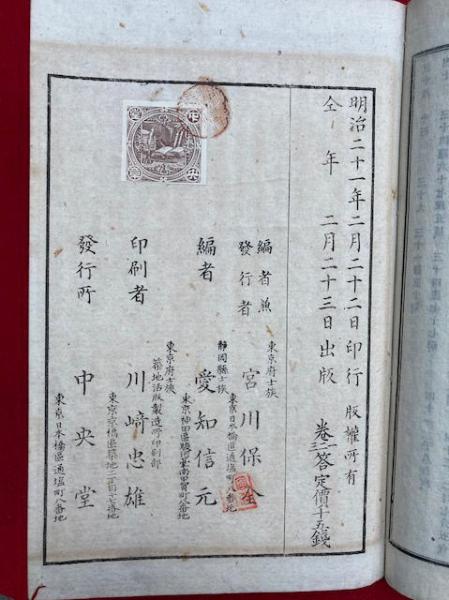 明治二十一年二月二十二日印行 版權所有
仝 年 二月二十三日出版 卷二答定價十五錢
編者兼
發行者
東京府士族
宮川保全
東京日本橋區通塩町八番地
編者
靜岡縣士族
愛知信元
東京神田區駿河臺南甲賀町八番地
印刷者
東京府士族
築地活版製造所印刷部
川﨑忠雄
東京京橋區築地二丁目十七番地
發行所
中央堂
東京日本橋區通塩町八番地